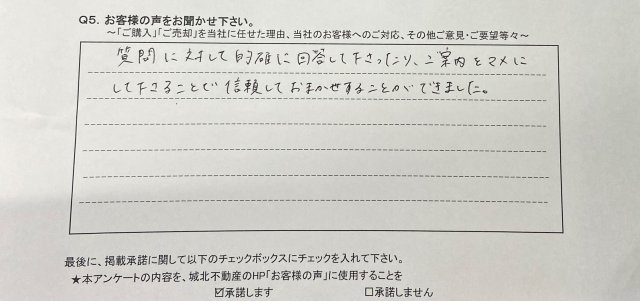 Q5. お客様の声をお聞かせ下さい。
～「ご購入」「ご売却」を当社に任せた理由、当社のお客様へのご対応、その他ご意見・ご要望等々～
質問に対して的確に回答して下さったり、ご案内をマメに
して下さることで信頼しておまかせすることができました。
最後に、掲載承諾に関して以下のチェックボックスにチェックを入れて下さい。
★本アンケートの内容を、城北不動産のHP「お客様の声」に使用することを
☑承諾します ☐承諾しません